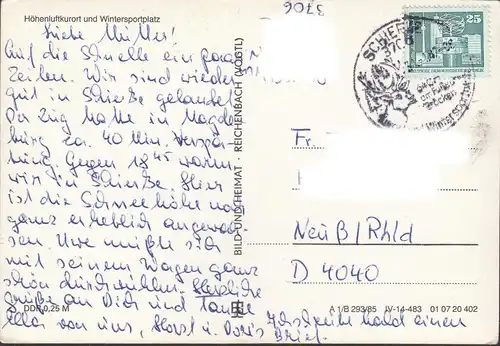 Höhenluftkurort und Wintersportplatz
3706
Liebe Mutter!
Auf die Schnelle ein paar
Zeilen. Wir sind wieder
gut in Schierke gelandet.
Der Zug hatte in Magde
burg ca. 40 Min. Verspä-
tung. Gegen 18 45 waren
wir in Schierke. Hier
ist die Schneehöhe noch
ganz erheblich angewach
sen. Uwe mußte sich
mit seinem Wagen ganz
schön durchwühlen. Herzliche
Grüße an Dich und Tante
von uns, Horst u. Doris Ich schreibe bald einen
Brief.
DDR 0,25 M
BILD UND HEIMAT · REICHENBACH (VOGTL)
A 1/B 293/85 IV-14-483 01 07 20 402
SCHIERKE
25
Fr.
Neuß/Rhld
D 4040